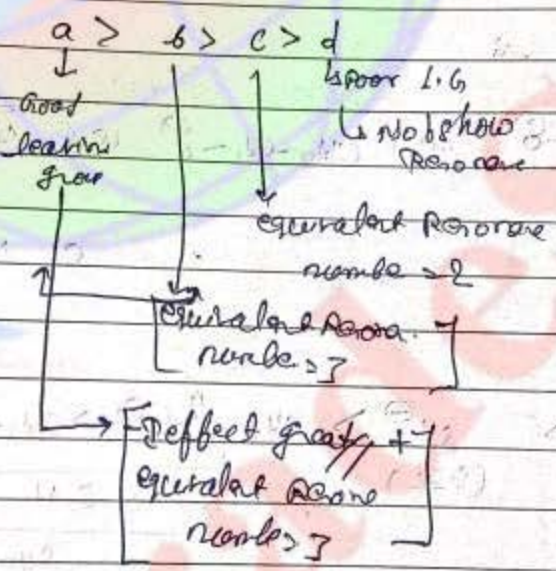 a > b > c > d
↓
Good
leaving
group
↳ poor L.G
↳ Not show
Resonance
equivalent Resonance
number = 2
equivalent Resona.
number = 3
I effect greater +
equivalent Resone
number = 3